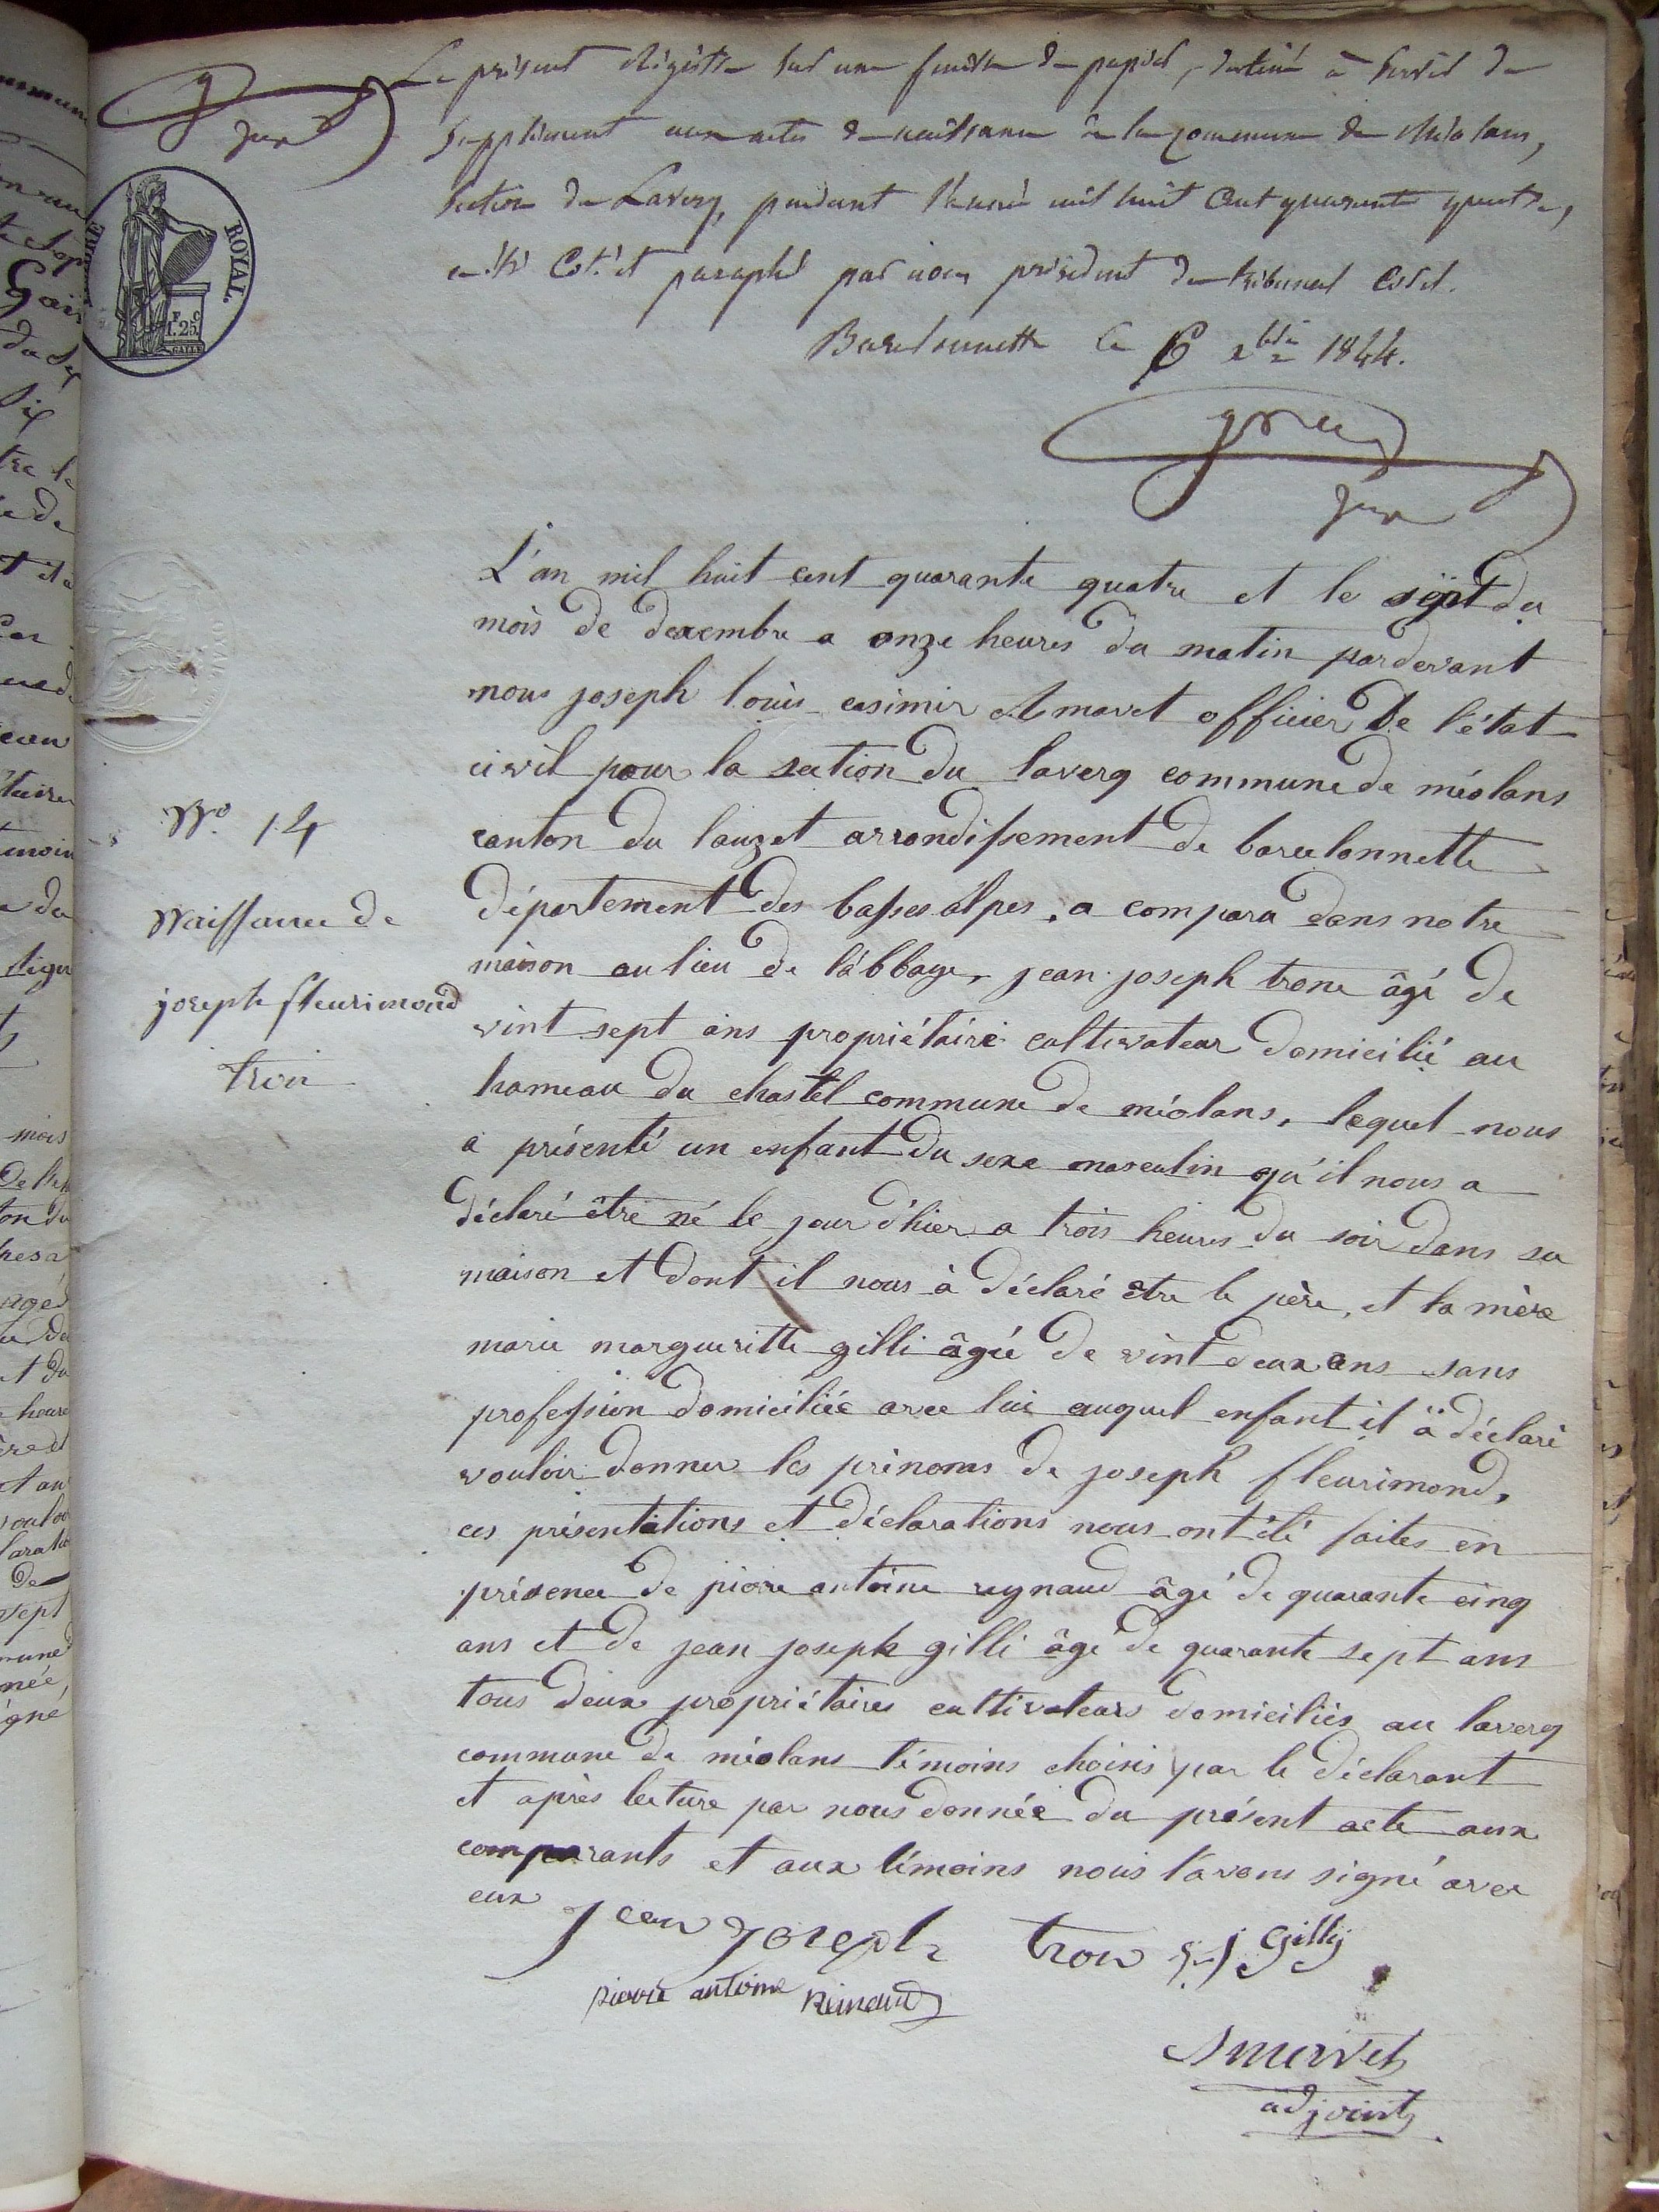 Le présent Régistre sur une feuille de papier, destiné à servir de
supplément aux actes de naissance de la commune de Méolans,
section de Laverq, pendant l'année mil huit cent quarante quatre,
a été coté et paraphé par nous président du tribunal civil.
Barcelonnette le 6 1844.
ROYAL.
F. C
1.25
N.º 14
Naissance de
joseph fleurimond
tron
L'an mil huit cent quarante quatre et le sept du
mois de decembre a onze heures du matin pardevant
nous joseph louis casimir Amavet officier De l'état
civil pour la section du laverq commune de méolans
canton du lauzet arrondissement de barcelonnette
département des basses alpes, a comparu dans notre
maison au lieu de l'abbaye, jean joseph trone âgé de
vint sept ans propriétaire cultivateur domicilié au
hameau du chastel commune de méolans, lequel nous
a présenté un enfant du sexe masculin qu'il nous a
déclaré être né le jour d'hier a trois heures du soir dans sa
maison et dont il nous à déclaré être le père, et la mère
marie margueritte gilli âgée de vint deux ans sans
profession domiciliée avec lui auquel enfant il a déclaré
vouloir donner les prénoms de joseph fleurimond,
ces présentations et déclarations nous ont été faites en
présence de piere antoine reynaud âgé de quarante cinq
ans et de jean joseph gilli âgé de quarante sept ans
tous deux propriétaires cultivateurs domiciliés au laverq
commune de méolans témoins choisis par le déclarant
et après lecture par nous donnée du présent acte aux
comparants et aux témoins nous l'avons signé avec
eux
jean joseph tron j j Gilly
pierre antoine Reinaud
Amavet
adjoint